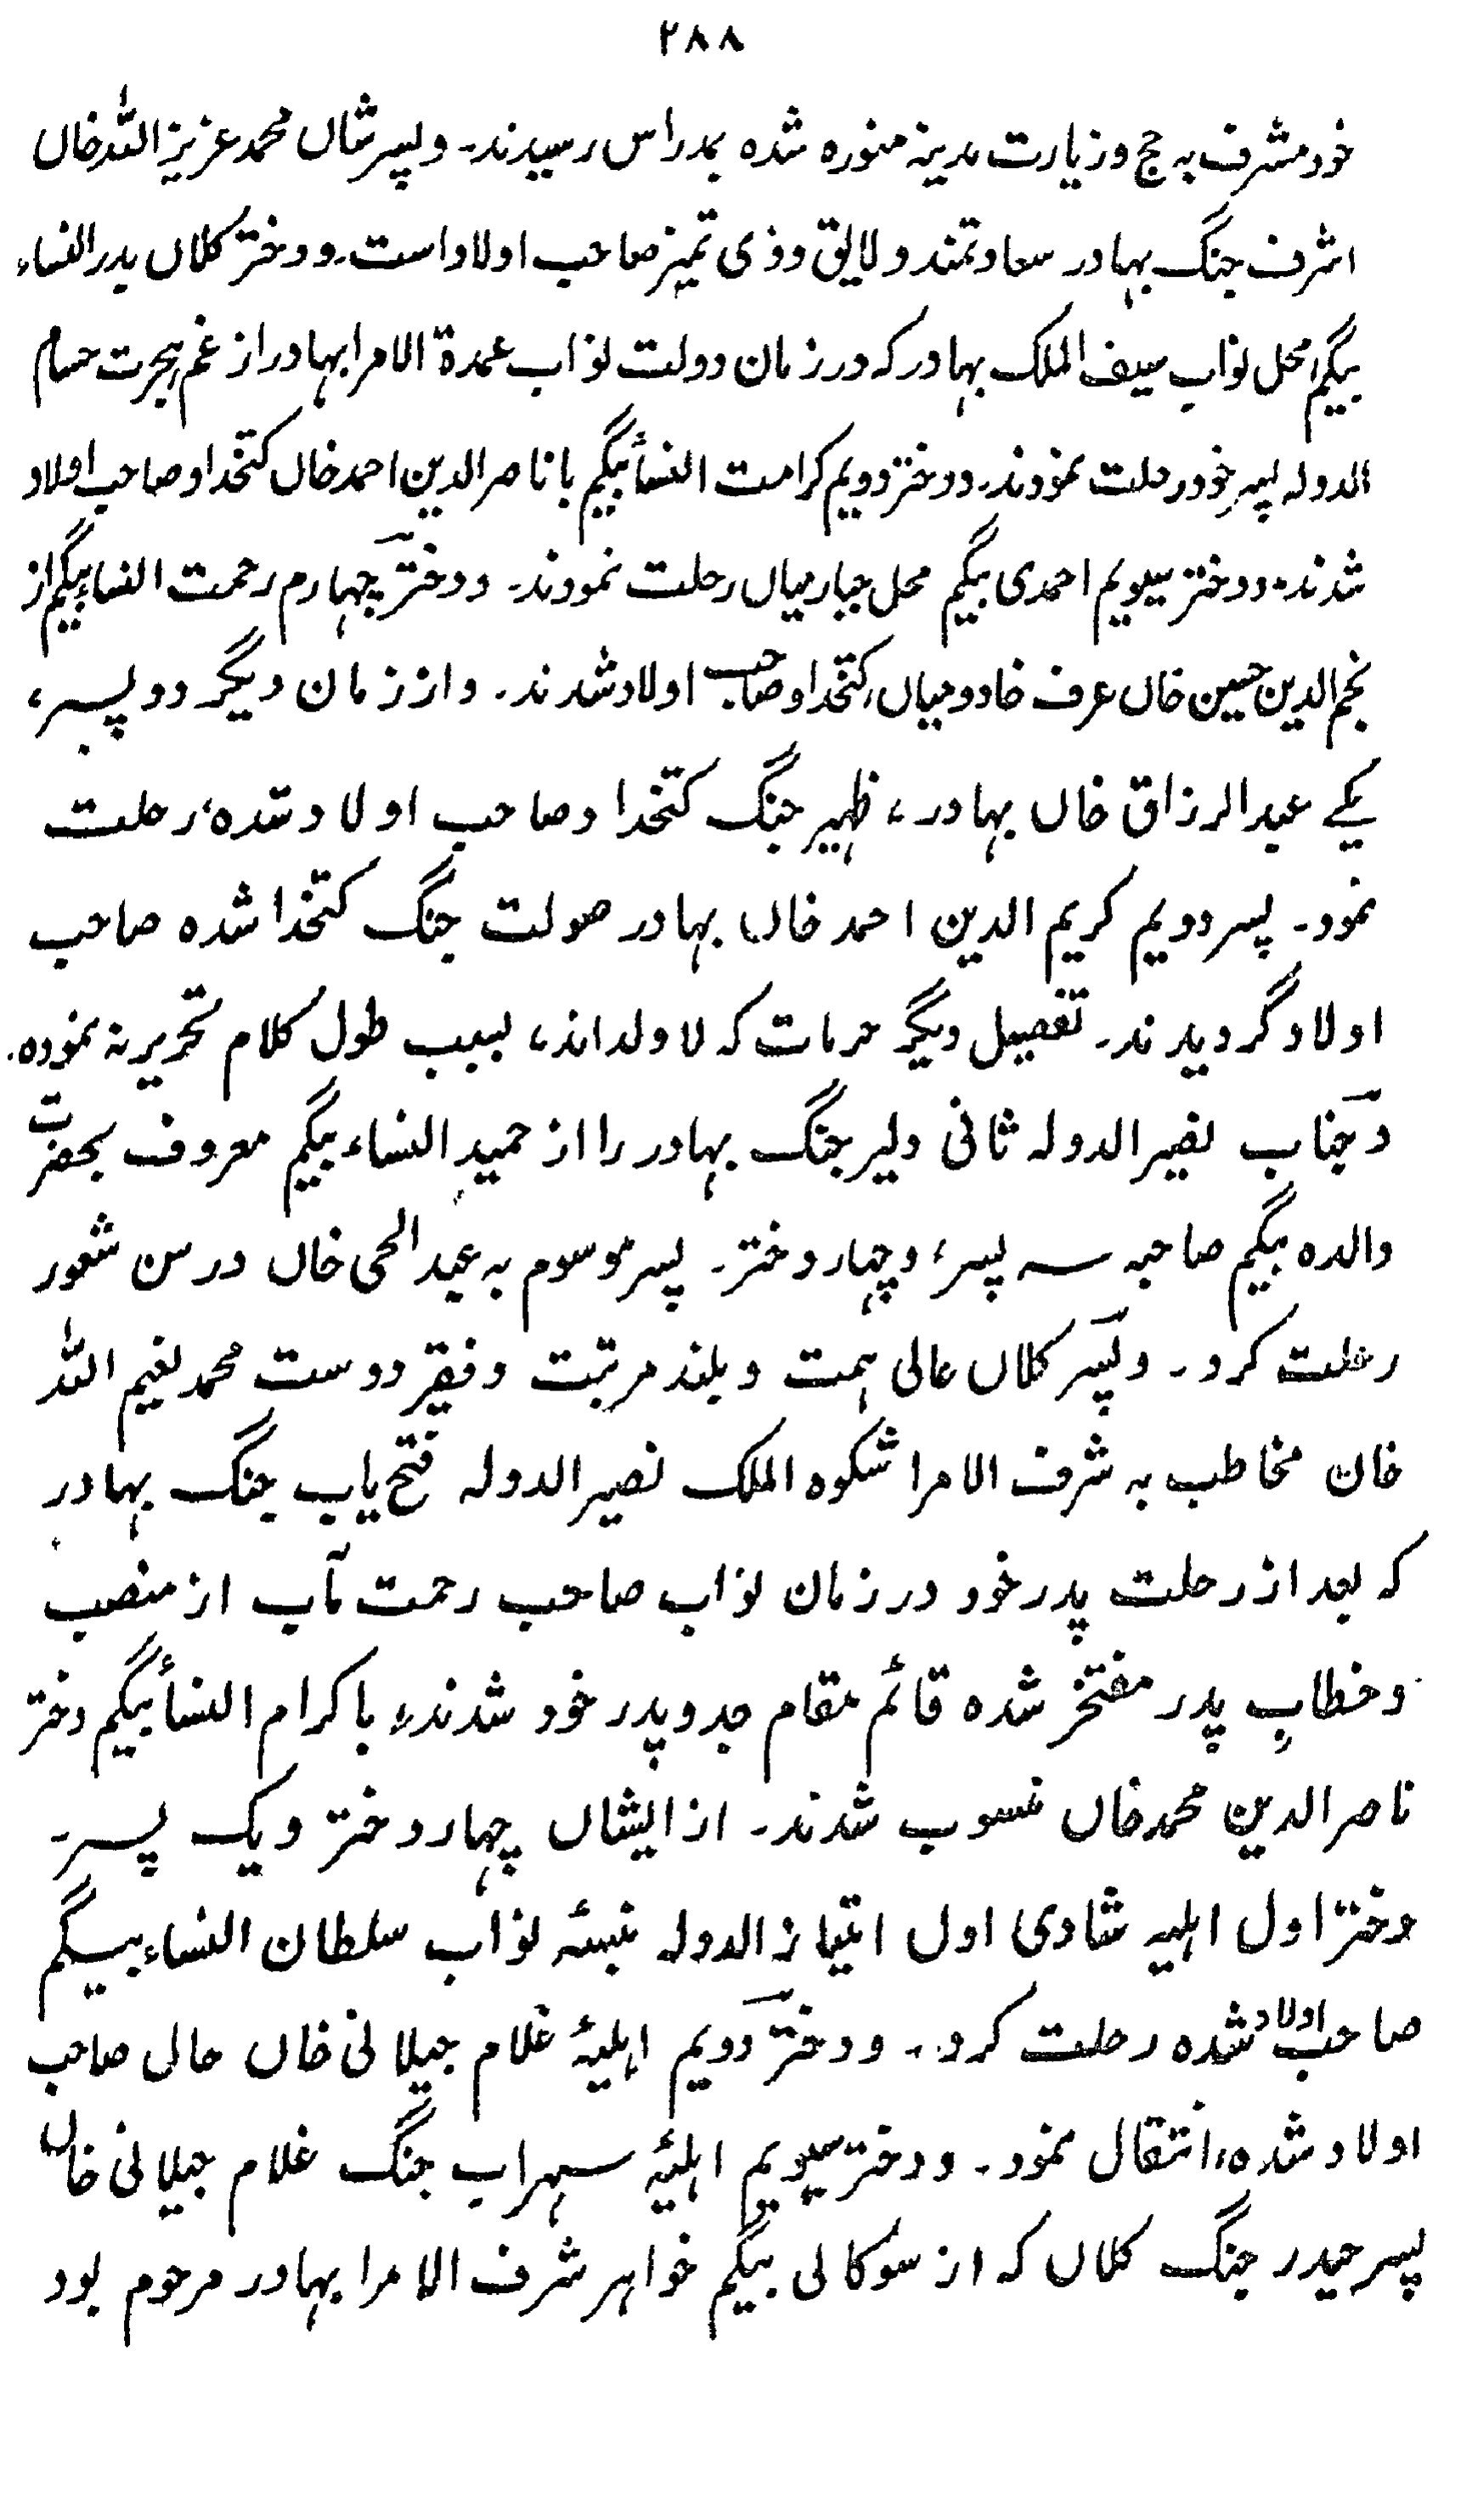 ۲۸۸
خود مشرف به حج وزیارت مدینه منوره شده بمدراس رسیدند۔ وپسر شاں محمد عزیز اللہ خاں
اشرف جنگ بہادر سعادتمند ولایق وذی تمیز صاحب اولاد است۔ ودختر کلاں بدر النساء
بیگم محل نواب سیف الملک بہادر که در زمان دولت نواب عمدة الامرا بہادر از غم ہجرت حسام
الدوله پسرِ خود رحلت نمودند۔ ودختر دویم کرامت النسأ بیگم با ناصر الدین احمد خاں کتخدا و صاحب اولاد
شدند۔ ودختر سیویم احمدی بیگم محل جبار میاں رحلت نمودند۔ ودختر چہارم رحمت النساء بیگم از
نجم الدین حسین خاں عرف خادو میاں، کتخدا وصاحب اولاد شدند۔ واز زمان دیگر دو پسر،
یکے عبد الرزاق خاں بہادر، ظہیر جنگ کتخدا وصاحب اولاد شده، رحلت
نمود۔ پسر دویم کریم الدین احمد خاں بہادر صولت جنگ کتخدا شده صاحب
اولاد گردیدند۔ تفصیل دیگر حرمات که لاولد اند، بسبب طول کلام تحریر نه نموده۔
وجناب نصیر الدوله ثانی دلیر جنگ بہادر را از حمید النساء بیگم معروف بحضرت
والده بیگم صاحبه سه پسر، وچہار دختر۔ پسر موسوم به عبد الحی خاں در سن شعور
رحلت کرد۔ وپسر کلاں عالی ہمت وبلند مرتبت وفقیر دوست محمد نعیم اللہ
خان مخاطب به شرف الامرا شکوه الملک نصیر الدوله فتح یاب جنگ بہادر
که بعد از رحلت پدر خود در زمان نواب صاحب رحمت مآب از منصب
وخطابِ پدر مفتخر شده قائم مقام جد وپدر خود شدند، با کرام النسأ بیگم دختر
ناصر الدین محمد خاں منسوب شدند۔ از ایشاں چہار دختر ویک پسر۔
دختر اول اہلیه شادی اول امتیاز الدوله نبسۂ نواب سلطان النساء بیگم
صاحب اولاد شده رحلت کرد۔ ودختر دویم اہلیۂ غلام جیلانی خاں حالی صاحب
اولاد شده، انتقال نمود۔ ودختر سیویم اہلیۂ سہراب جنگ غلام جیلانی خاں
پسر حیدر جنگ کلاں که از سوکالی بیگم خواہر شرف الامرا بہادر مرحوم بود